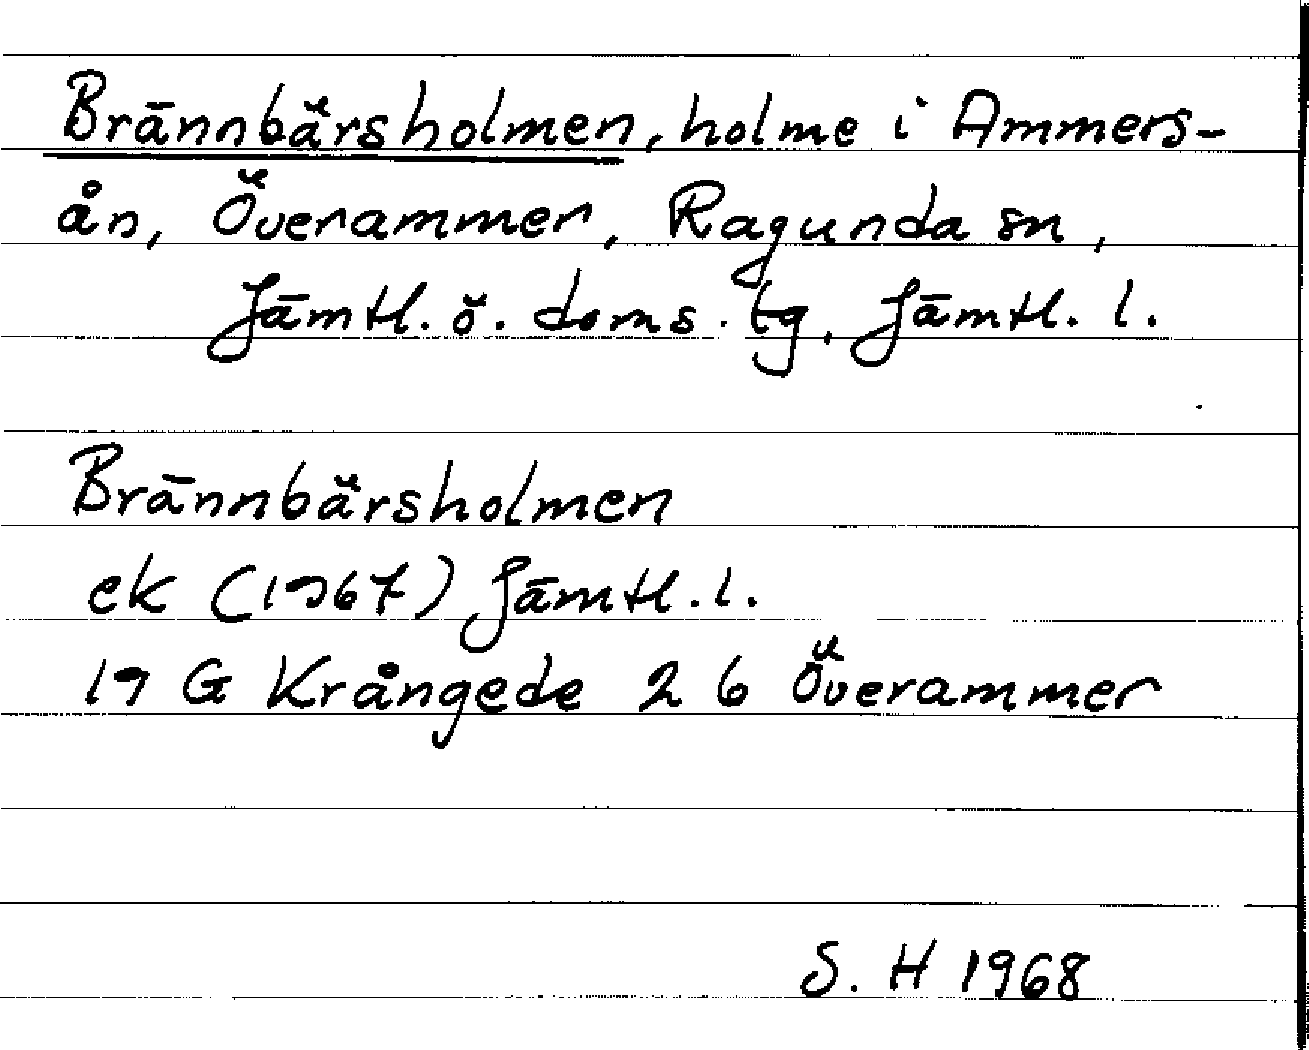 Brännbärsholmen, holme i Ammers-
ån, Överammer, Ragunda sn,
Jämtl. ö. doms. tg, Jämtl. l.
Brännbärsholmen
ek (1967) Jämtl. l.
19 G Krångede 2 b Överammer
S. H 1968